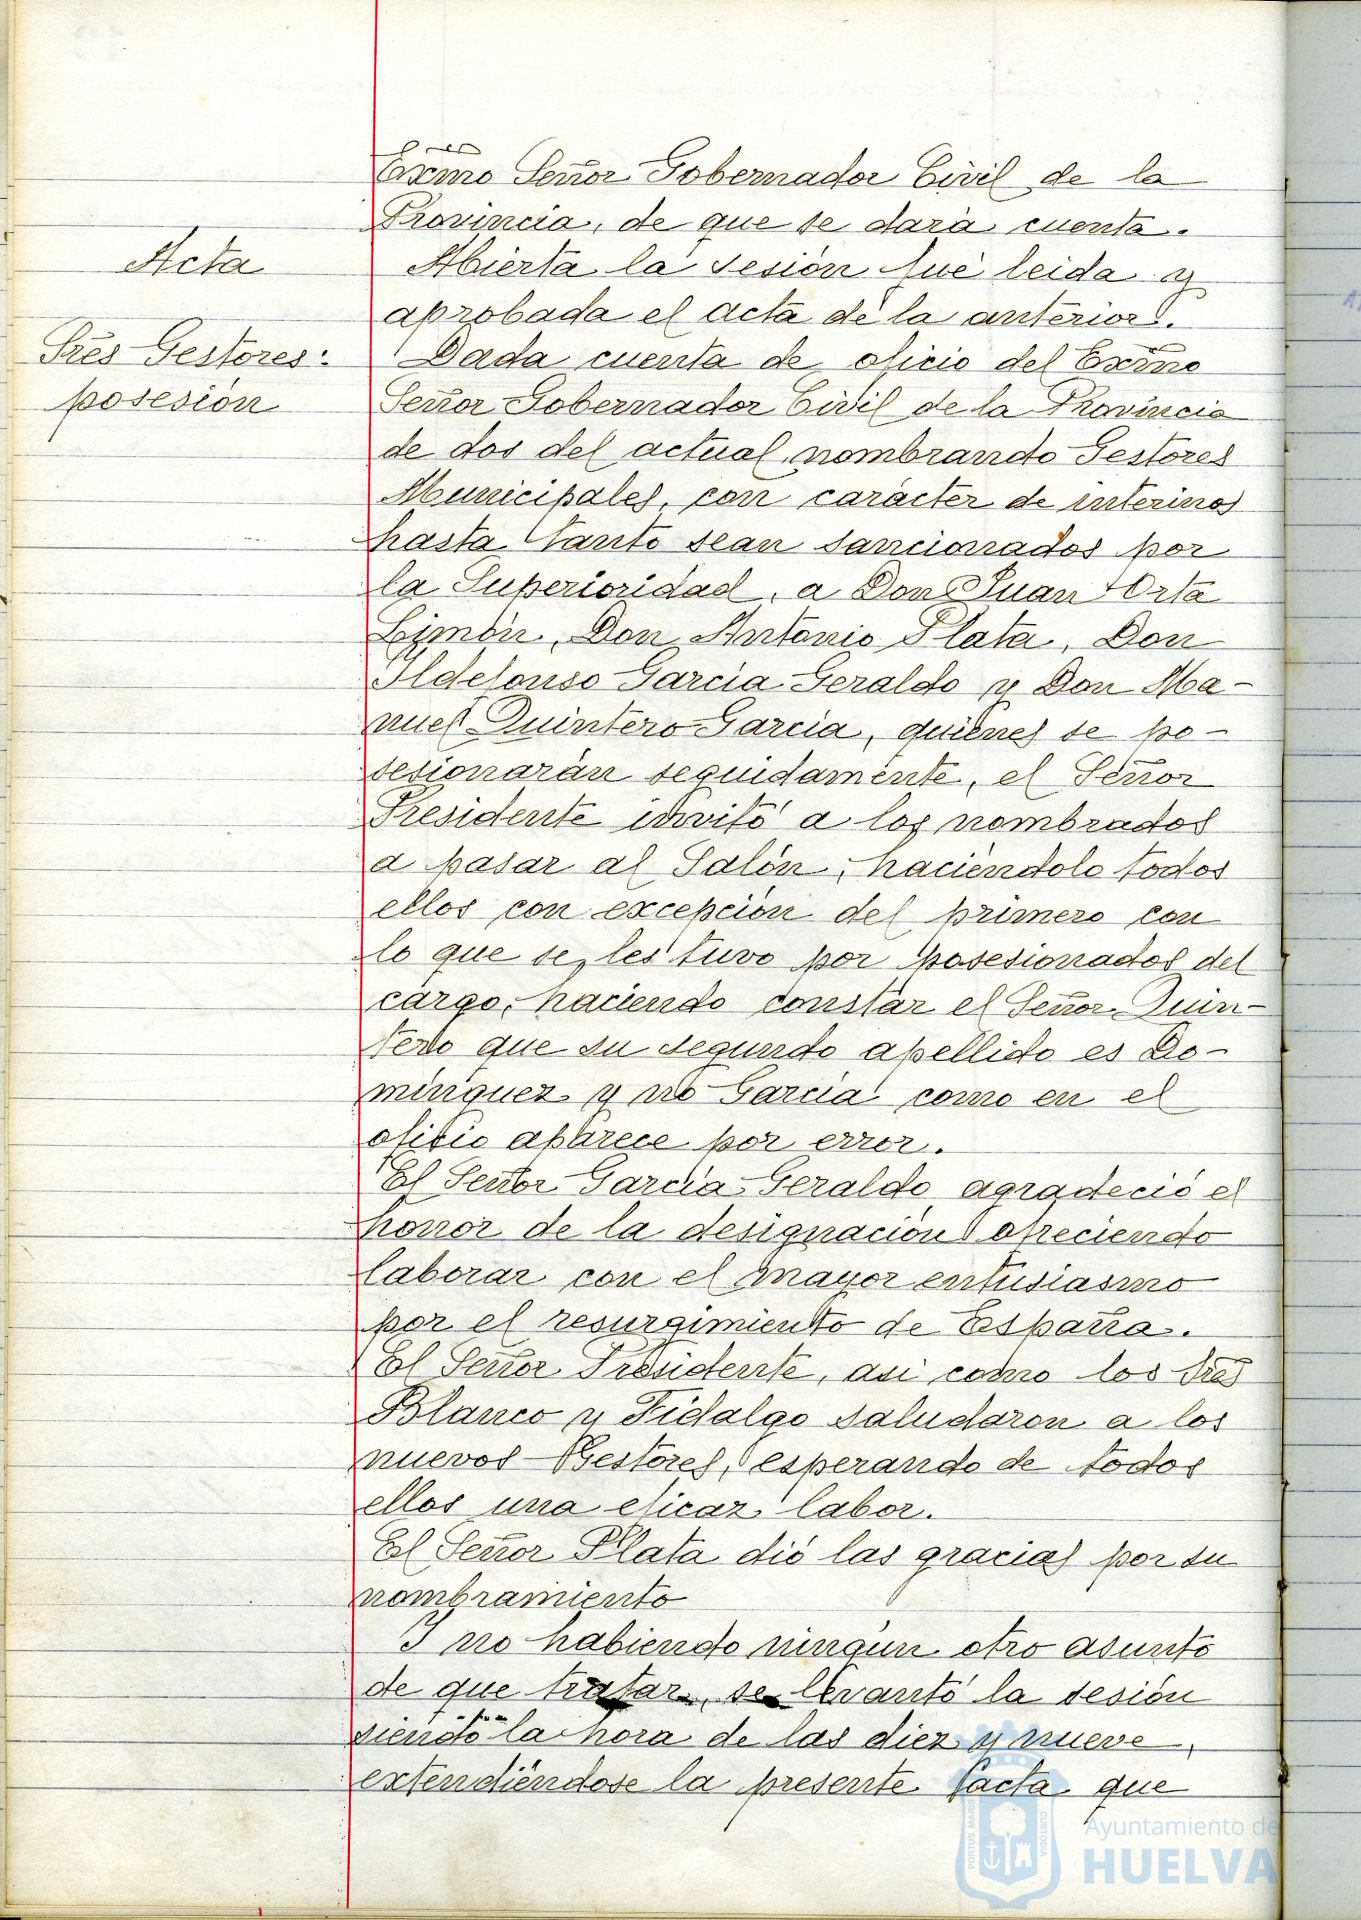 Exmo Señor Gobernador Civil de la
Provincia, de que se dará cuenta.
Acta
Abierta la sesión fué leida y
aprobada el acta de la anterior.
Sres Gestores:
posesión
Dada cuenta de oficio del Exmo
Señor Gobernador Civil de la Provincia
de dos del actual, nombrando Gestores
Municipales, con carácter de interinos
hasta tanto sean sancionados por
la Superioridad, a Don Juan Orta
Limón, Don Antonio Plata, Don
Ildefonso García Geraldo y Don Ma-
nuel Quintero García, quienes se po-
sesionarán seguidamente, el Señor
Presidente invitó a los nombrados
a pasar al Salón, haciéndolo todos
ellos con excepción del primero con
lo que se les tuvo por posesionados del
cargo, haciendo constar el Señor Quin-
tero que su segundo apellido es Do-
minguez y no García como en el
oficio aparece por error.
El Señor García Geraldo agradeció el
honor de la designación ofreciendo
laborar con el mayor entusiasmo
por el resurgimiento de España.
El Señor Presidente, asi como los Sres
Blanco y Fidalgo saludaron a los
nuevos Gestores, esperando de todos
ellos una eficaz labor.
El Señor Plata dió las gracias por su
nombramiento
Y no habiendo ningún otro asunto
de que tratar, se levantó la sesión
siendo la hora de las diez y nueve,
extendiéndose la presente acta que
PORTUS MARIS
CUSTODIA
Ayuntamiento de
HUELVA